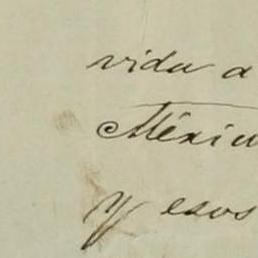 vida a
Méxic
y esos